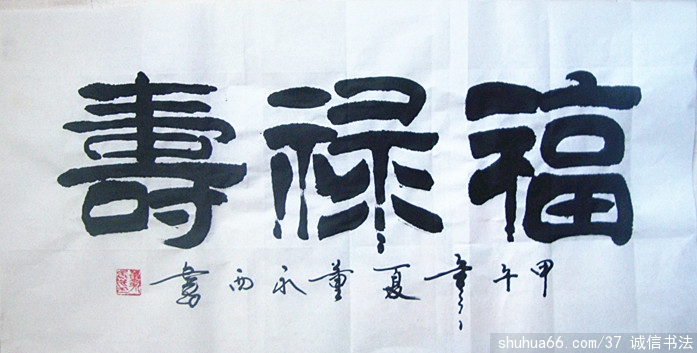 福禄壽
甲午年夏董永西書
shuhua66.com/37 诚信书法